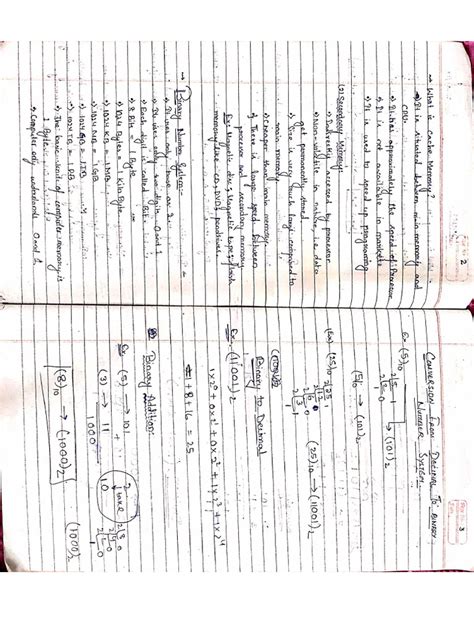 2
→ What is Cache Memory?
→ It is situated between main memory and
CPU.
→ It has approximately the speed of Processor
→ It is not available in
→ It is used to speed up
(2) Secondary Memory:
→ Indirectly accessed by processor
→ Non-volatile in nature, i.e. data
get permanently stored
→ Size is very much large compared to
main memory
→ Cheaper than main memory
→ There is large speed between
processor and secondary memory
Ex: Magnetic disc, Magnetic tapes, flash
memory like CD, DVD, pendrives.
→ Binary Number System:-
→ It uses only base as 2
→ It uses only two digits 0 and 1
→ Each digit called Bit.
→ 8 Bits = 1 Byte
→ 1024 Bytes = 1 Kilo Byte
→ 1024 KB = 1 MB
→ 1024 MB = 1 GB
→ 1024 GB = 1 TB
→ 1024 TB = 1 PB
→ The basic unit of computer memory is
1 Byte.
→ Computer only understands 0 and 1.
3
CONVERSION FROM DECIMAL TO BINARY
NUMBER SYSTEM
Ex (5)10 → (101)2
(5)10 → (101)2
(Ex) (25)10
(25)10 → (11001)2
Binary to Decimal
Ex. (11001)2
1x2⁰ + 0x2¹ + 0x2² + 1x2³ + 1x2⁴
1 + 8 + 16 = 25
Binary Addition:
Ex. (5) → 101
+
(3) → 11
1000
(8)10 → (1000)2
(1000)2